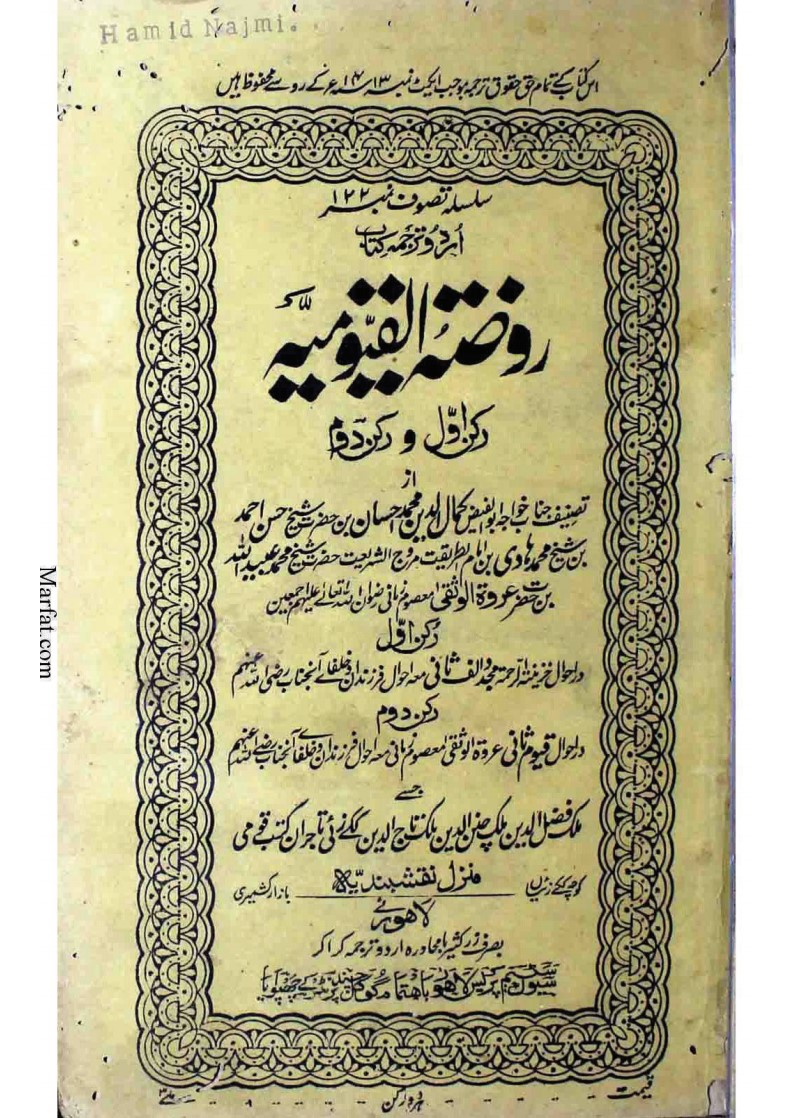 Hamid Najmi.
اس کتاب کے تمام حق حقوق ترجمہ بموجب ایکٹ نمبر ۳ ۱۹۱۴ء کے رو سے محفوظ ہیں
سلسلہ تصوف نمبر ۱۲۲
اردو ترجمہ کتاب
روضتہ القیومیہ
رکن اوّل و رکن دوم
از
تصنیف جناب خواجہ ابوالفیض کمال الدین محمد احسان بن حضرت شیخ حسن احمد
بن شیخ محمد ہادی بن امام الطریقت مروج الشریعت حضرت شیخ محمد عبید اللہ
بن حضرت عروۃ الوثقیٰ معصوم زمانی رضوان اللہ تعالےٰ علیہم اجمعین
رکن اوّل
در احوال خزینۃ الرحمۃ مجدد الف ثانی معہ احوال فرزندان و خلفائے آنجناب رضی اللہ عنہم
رکن دوم
در احوال قیوم ثانی عروۃ الوثقیٰ معصوم زمانی معہ احوال فرزندان و خلفا آنجناب رضی اللہ عنہم
جسے
ملک فضل الدین ملک چنن الدین ملک تاج الدین ککے زئی تاجران کتب قومی
کوچہ ککے زئیاں منزل نقشبندیہ بازار کشمیری
لاہور نے
بصرف زر کثیر بامحاورہ اردو ترجمہ کرا کر
سٹیم پریس لاہور باہتمام پرنٹر کے چھپوایا
قیمت ہر دو رکن
Marfat.com